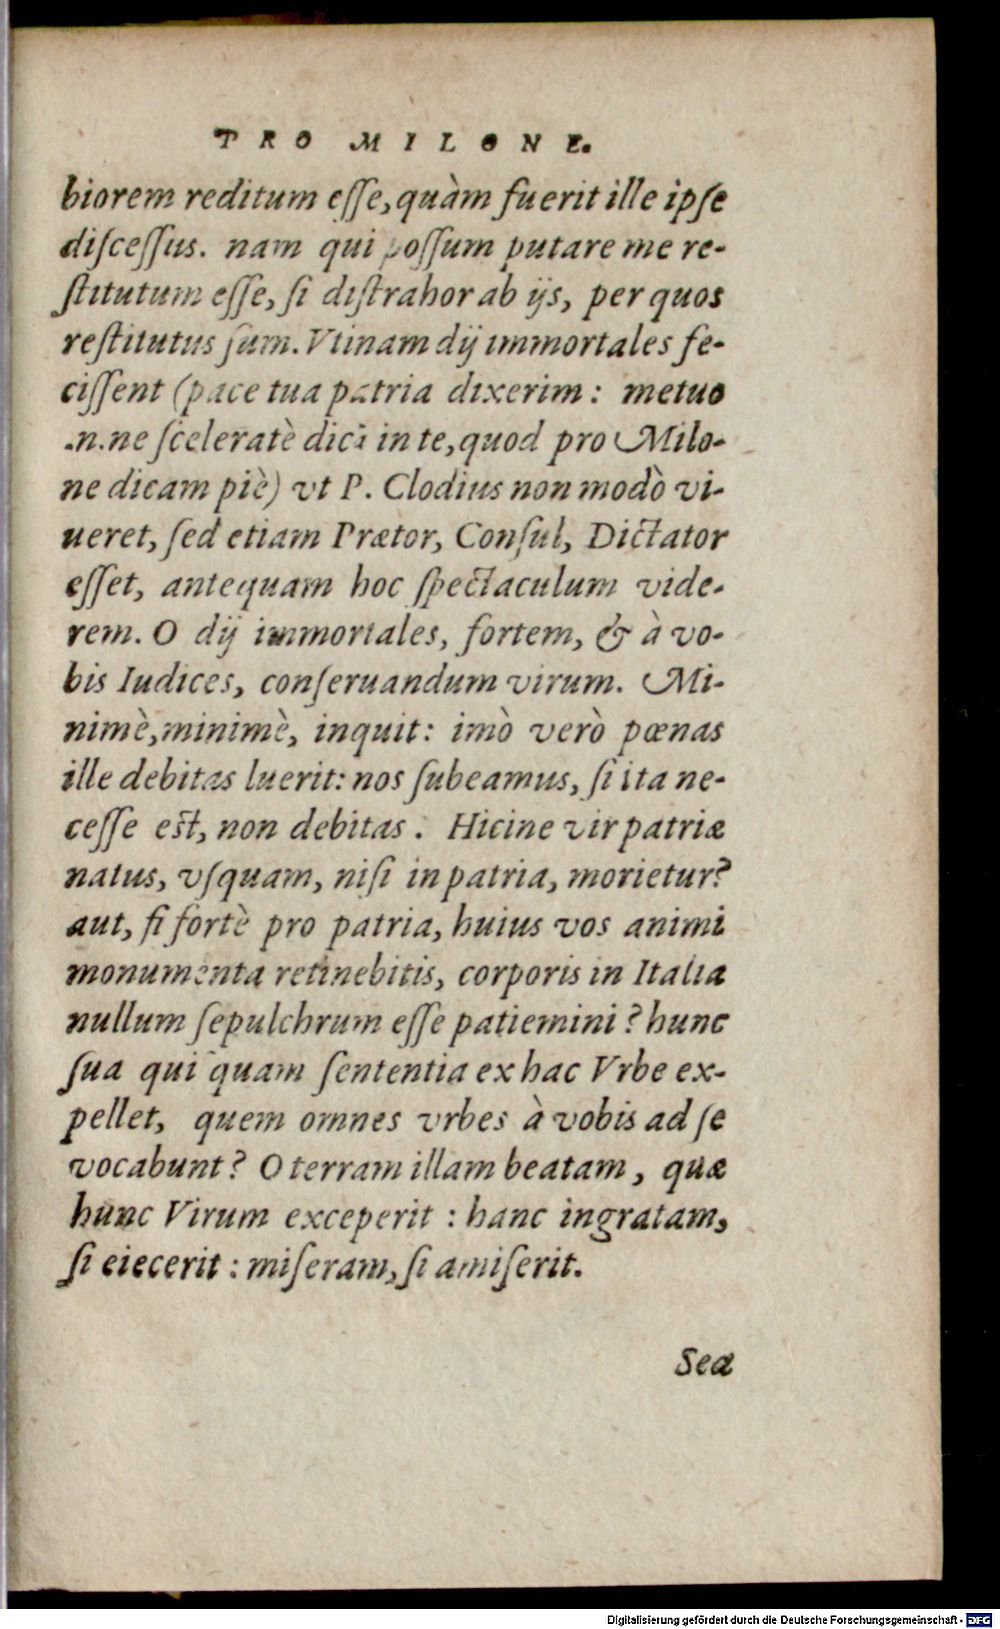 PRO MILONE.
biorem reditum eſſe, quàm fuerit ille ipſe
diſceſſus. nam qui poſſum putare me re-
ſtitutum eſſe, ſi diſtrahor ab ijs, per quos
reſtitutus ſum. Vtinam dij immortales fe-
ciſſent (pace tua patria dixerim: metuo
.n. ne ſceleratè dicã in te, quod pro Milo-
ne dicam piè) vt P. Clodius non modò vi-
ueret, ſed etiam Prætor, Conſul, Dictator
eſſet, antequam hoc ſpectaculum vide-
rem. O dij immortales, fortem, & à vo-
bis Iudices, conſeruandum virum. Mi-
nimè, minimè, inquit: imò verò pœnas
ille debitas luerit: nos ſubeamus, ſi ita ne-
ceſſe eſt, non debitas. Hicine vir patriæ
natus, vſquam, niſi in patria, morietur?
aut, ſi fortè pro patria, huius vos animi
monumenta retinebitis, corporis in Italia
nullum ſepulchrum eſſe patiemini? hunc
ſua quiſquam ſententia ex hac Vrbe ex-
pellet, quem omnes vrbes à vobis ad ſe
vocabunt? O terram illam beatam, quæ
hunc Virum exceperit: hanc ingratam,
ſi eiecerit: miſeram, ſi amiſerit.
Sed
Digitalisierung gefördert durch die Deutsche Forschungsgemeinschaft - DFG